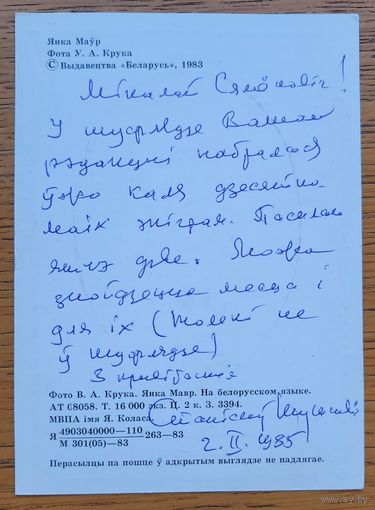 Янка Маўр
Фота У. А. Крука
© Выдавецтва «Беларусь», 1983
Мікалай Сямёнавіч!
У шуфлядзе Вашай
рэдакцыі набралася
ўжо каля дзесятка
маіх эпіграм. Пасылаю
яшчэ дзве. Можа
знойдзецца месца і
для іх (толькі не
ў шуфлядзе)
З прывітаннем
Фото В. А. Крука. Янка Мавр. На белорусском языке.
АТ 08058. Т. 16 000 экз. Ц. 2 к. З. 3394.
МВПА імя Я. Коласа.
Я 4903040000—110 / М 301(05)—83 263—83
2. II. 1985
Перасылцы па пошце ў адкрытым выглядзе не падлягае.